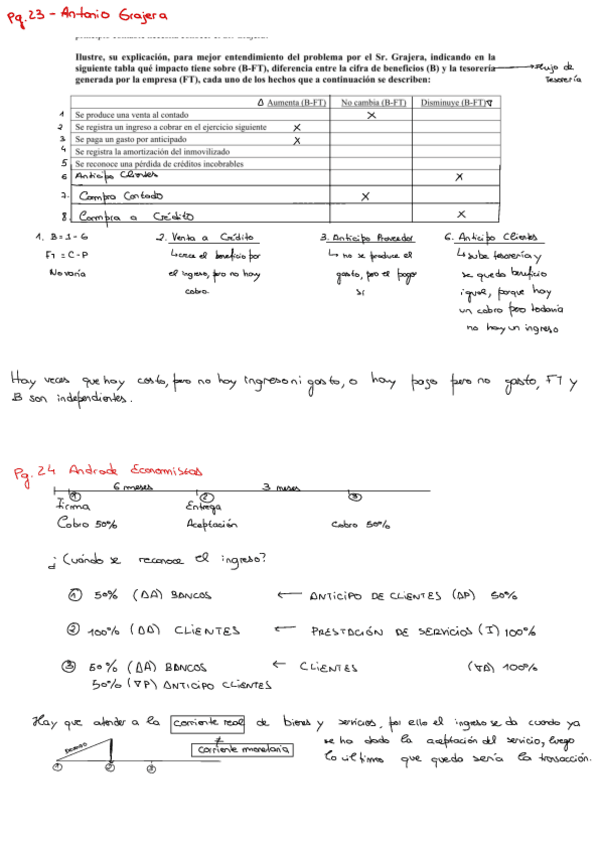 Pg.23 - Antonio Grajera
Ilustre, su explicación, para mejor entendimiento del problema por el Sr. Grajera, indicando en la
siguiente tabla qué impacto tiene sobre (B-FT), diferencia entre la cifra de beneficios (B) y la tesorería
generada por la empresa (FT), cada uno de los hechos que a continuación se describen:
→ Flujo de
Tesorería
Δ Aumenta (B-FT) No cambia (B-FT) Disminuye (B-FT)∇
1 Se produce una venta al contado X
2 Se registra un ingreso a cobrar en el ejercicio siguiente X
3 Se paga un gasto por anticipado X
4 Se registra la amortización del inmovilizado
5 Se reconoce una pérdida de créditos incobrables
6 Anticipo Clientes X
7. Compra Contado X
8. Compra a Crédito X
1. B = I - G
FT = C - P
No varía
2. Venta a Crédito
↳ crece el beneficio por
el ingreso, pero no hay
cobro.
3. Anticipo Proveedor
↳ no se produce el
gasto, pero el pago
sí
6. Anticipo Clientes
↳ sube tesorería y
se queda beneficio
igual, porque hay
un cobro pero todavía
no hay un ingreso
Hay veces que hay costo, pero no hay ingreso ni gasto, o hay pago pero no gasto, FT y
B son independientes.
Pg. 24 Andrade Economistas
6 meses 3 meses
① ② ③
Firma Entrega
Cobro 50% Aceptación Cobro 50%
¿Cuándo se reconoce el ingreso?
① 50% (ΔA) BANCOS ← ANTICIPO DE CLIENTES (ΔP) 50%
② 100% (ΔA) CLIENTES ← PRESTACIÓN DE SERVICIOS (I) 100%
③ 50% (ΔA) BANCOS ← CLIENTES (∇A) 100%
50% (∇P) ANTICIPO CLIENTES
Hay que atender a la corriente real de bienes y servicios, por ello el ingreso se da cuando ya
≠
corriente monetaria
se ha dado la aceptación del servicio, luego
lo último que queda sería la transacción.
① ② ③